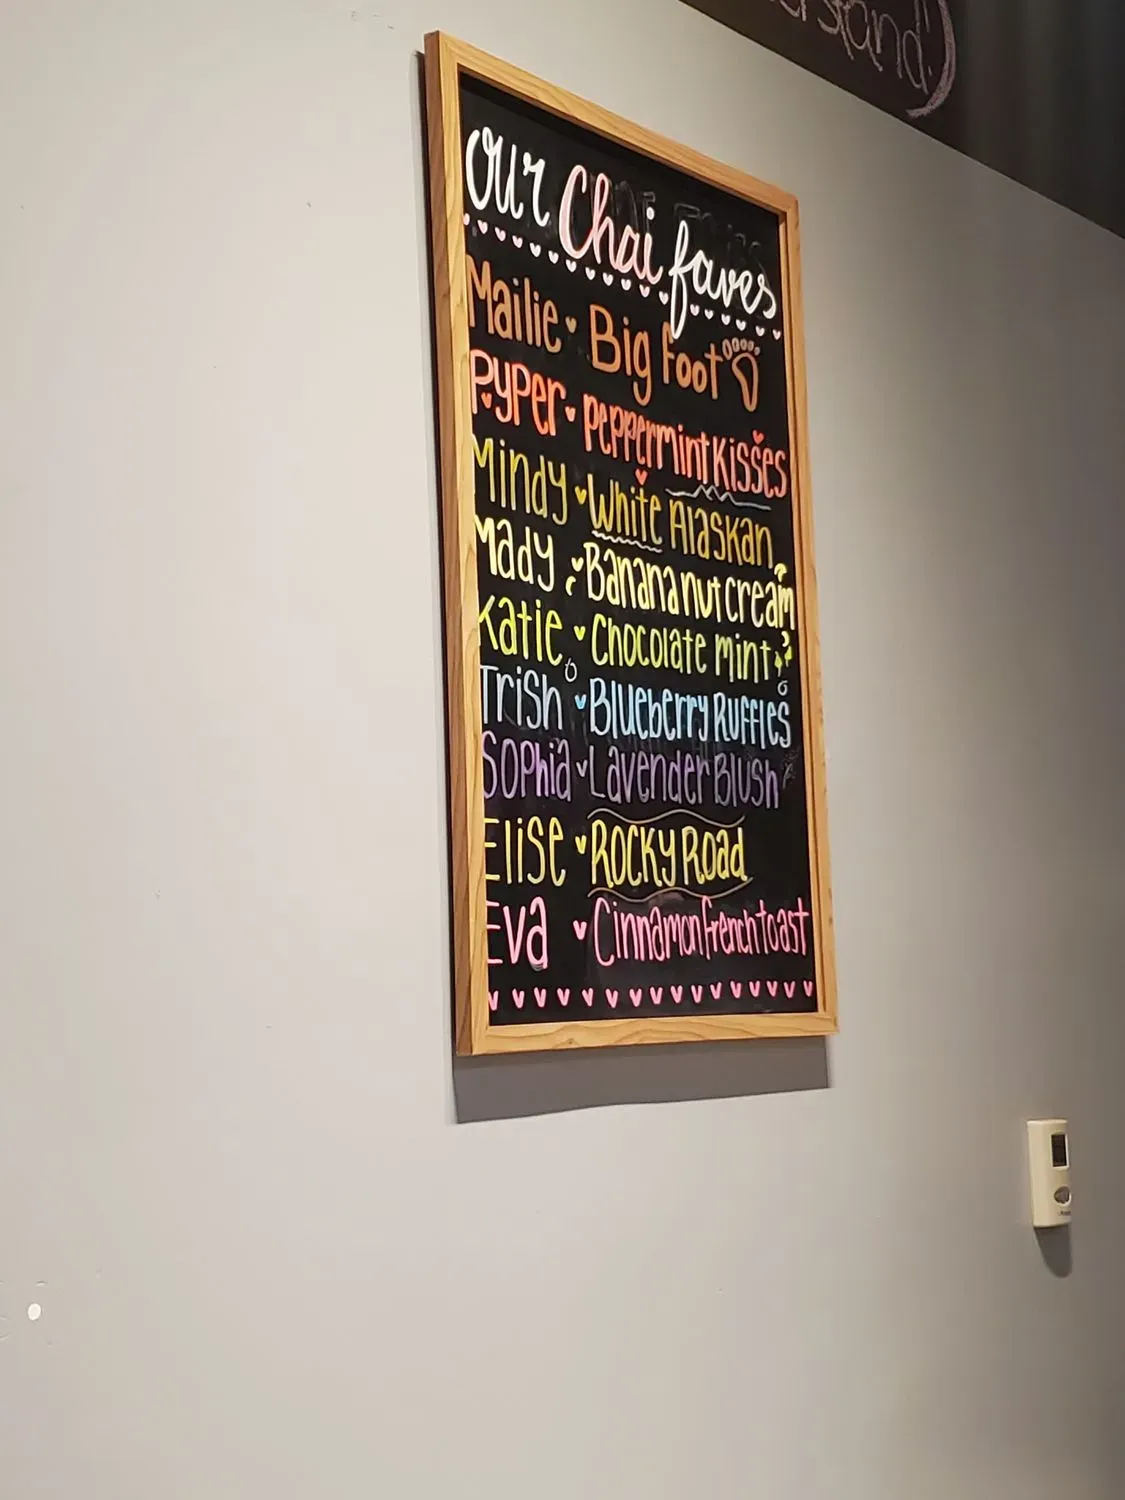 our Chai faves
Mailie Big foot
Pyper peppermint Kisses
Mindy White Alaskan
Mady Banana nut cream
Katie Chocolate mint
Trish Blueberry Ruffles
Sophia Lavender Blush
Elise Rocky Road
Eva Cinnamon french toast